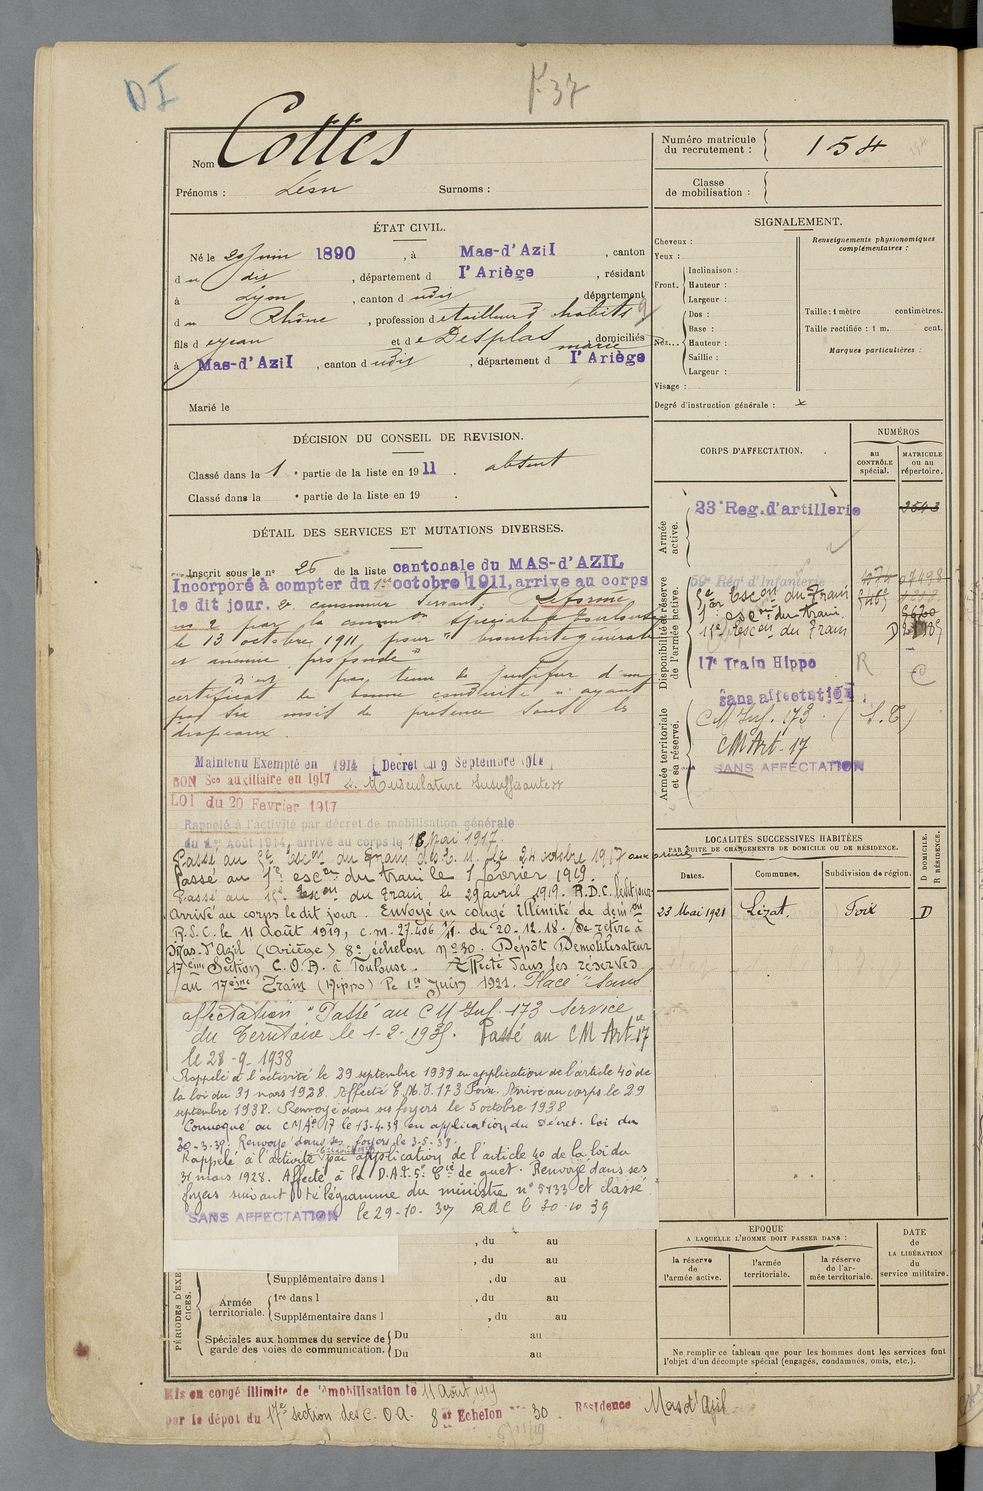 DI
F 37
Nom Cottes
Prénoms : Léon Surnoms :
Numéro matricule du recrutement : 154
Classe de mobilisation :
ÉTAT CIVIL.
Né le 20 Juin 1890, à Mas-d'Azil, canton
du dit, département d l'Ariège, résidant
à Lyon, canton d udit, département
du Rhône, profession de tailleur d'habits
fils de Jean et de Desplas marie, domiciliés
à Mas-d'Azil, canton d udit, département d l'Ariège
Marié le
DÉCISION DU CONSEIL DE REVISION.
Classé dans la 1 e partie de la liste en 1911. absent
Classé dans la e partie de la liste en 19 .
DÉTAIL DES SERVICES ET MUTATIONS DIVERSES.
Inscrit sous le no 26 de la liste cantonale du MAS-d'AZIL
Incorporé à compter du 1er octobre 1911, arrive au corps
le dit jour. 2e canonnier servant. Réformé
no 2 par la common spéciale de Toulouse
le 13 octobre 1911 pour "bronchite générale
et anémie profonde"
N'est pas tenu de justifier d'un
certificat de bonne conduite n'ayant
pas six mois de présence sous les
drapeaux.
Maintenu Exempté en 1914 [Décret du 9 Septembre 1914]
BON Sce auxiliaire en 1917 "Musculature insuffisante"
LOI du 20 Fevrier 1917
Rappelé à l'activité par décret de mobilisation générale
du 1er Août 1914, arrivé au corps le 16 Mai 1917.
Passé au 5e Escon du Train des E. M. le 24 octobre 1917 aux armées
Passé au 1er escon du train le 1 février 1919.
Passé au 15e Escon du Train le 29 avril 1919. R.D.C. le dit jour
Arrivé au corps le dit jour. Envoyé en congé illimité de démon
R.S.C. le 11 Août 1919, c.m. 27.406 1/11. du 20-12-18. Se retire à
Mas-d'Azil (Ariège) 8e échelon no 30. Dépôt Démobilisateur
17ème Section C.O.A. à Toulouse. Affecté dans les réserves
au 17ème Train (Hippo) le 1er Juin 1921. Placé "Sans
affectation" Passé au CM Inf. 173 Service
du Territoire le 1-2-1935. Passé au CM Art 17
le 28-9-1938
Rappelé à l'activité le 29 septembre 1938 en application de l'article 40 de
la loi du 31 mars 1928. Affecté C.M.I. 173 Foix. Arrivé au corps le 29
septembre 1938. Renvoyé dans ses foyers le 5 octobre 1938
Convoqué au CMA 17 le 13.4.39 en application du Décret. loi du
20-3-39. Renvoyé dans ses foyers le 3-5-39.
Rappelé à l'activité par application de l'article 40 de la loi du
31 mars 1928. Affecté à la D.A.T. 5e Cie de guet. Renvoyé dans ses
foyers suivant télégramme du ministre no 5433 et classé
SANS AFFECTATION le 29-10-39 RDC le 30-10 39
, du au
, du au
PÉRIODES D'EXERCICES.
Supplémentaire dans l , du au
Armée territoriale. 1re dans l , du au
Supplémentaire dans l , du au
Spéciales aux hommes du service de garde des voies de communication. Du au
Du au
SIGNALEMENT.
Cheveux :
Yeux :
Front. Inclinaison :
Hauteur :
Largeur :
Nez... Dos :
Base :
Hauteur :
Saillie :
Largeur :
Visage :
Renseignements physionomiques complémentaires :
Taille : 1 mètre centimètres.
Taille rectifiée : 1 m. cent.
Marques particulières :
Degré d'instruction générale : x
CORPS D'AFFECTATION.
NUMÉROS
au CONTRÔLE spécial.
MATRICULE ou au répertoire.
Armée active.
23e Reg. d'artillerie
Disponibilité et réserve de l'armée active.
59e Rég d'Infanterie
5e Escon du Train
1er escon du train
15e Escon du Train
17e Train Hippo R
Armée territoriale et sa réserve.
sans affectation
CM Inf. 173 (S.T)
CM Art. 17
SANS AFFECTATION
LOCALITÉS SUCCESSIVES HABITÉES
PAR SUITE DE CHANGEMENTS DE DOMICILE OU DE RÉSIDENCE.
Dates. Communes. Subdivision de région. D DOMICILE. R RÉSIDENCE.
23 Mai 1921 Lézat. Foix D
EPOQUE
A LAQUELLE L'HOMME DOIT PASSER DANS :
la réserve de l'armée active.
l'armée territoriale.
la réserve de l'armée territoriale.
DATE de LA LIBÉRATION du service militaire.
Ne remplir ce tableau que pour les hommes dont les services font
l'objet d'un décompte spécial (engagés, condamnés, omis, etc.).
Mis en congé illimité de démobilisation le 11 Août 1919
par le dépôt du 17e section des C.O.A. 8e Echelon No 30. Résidence Mas d'Azil